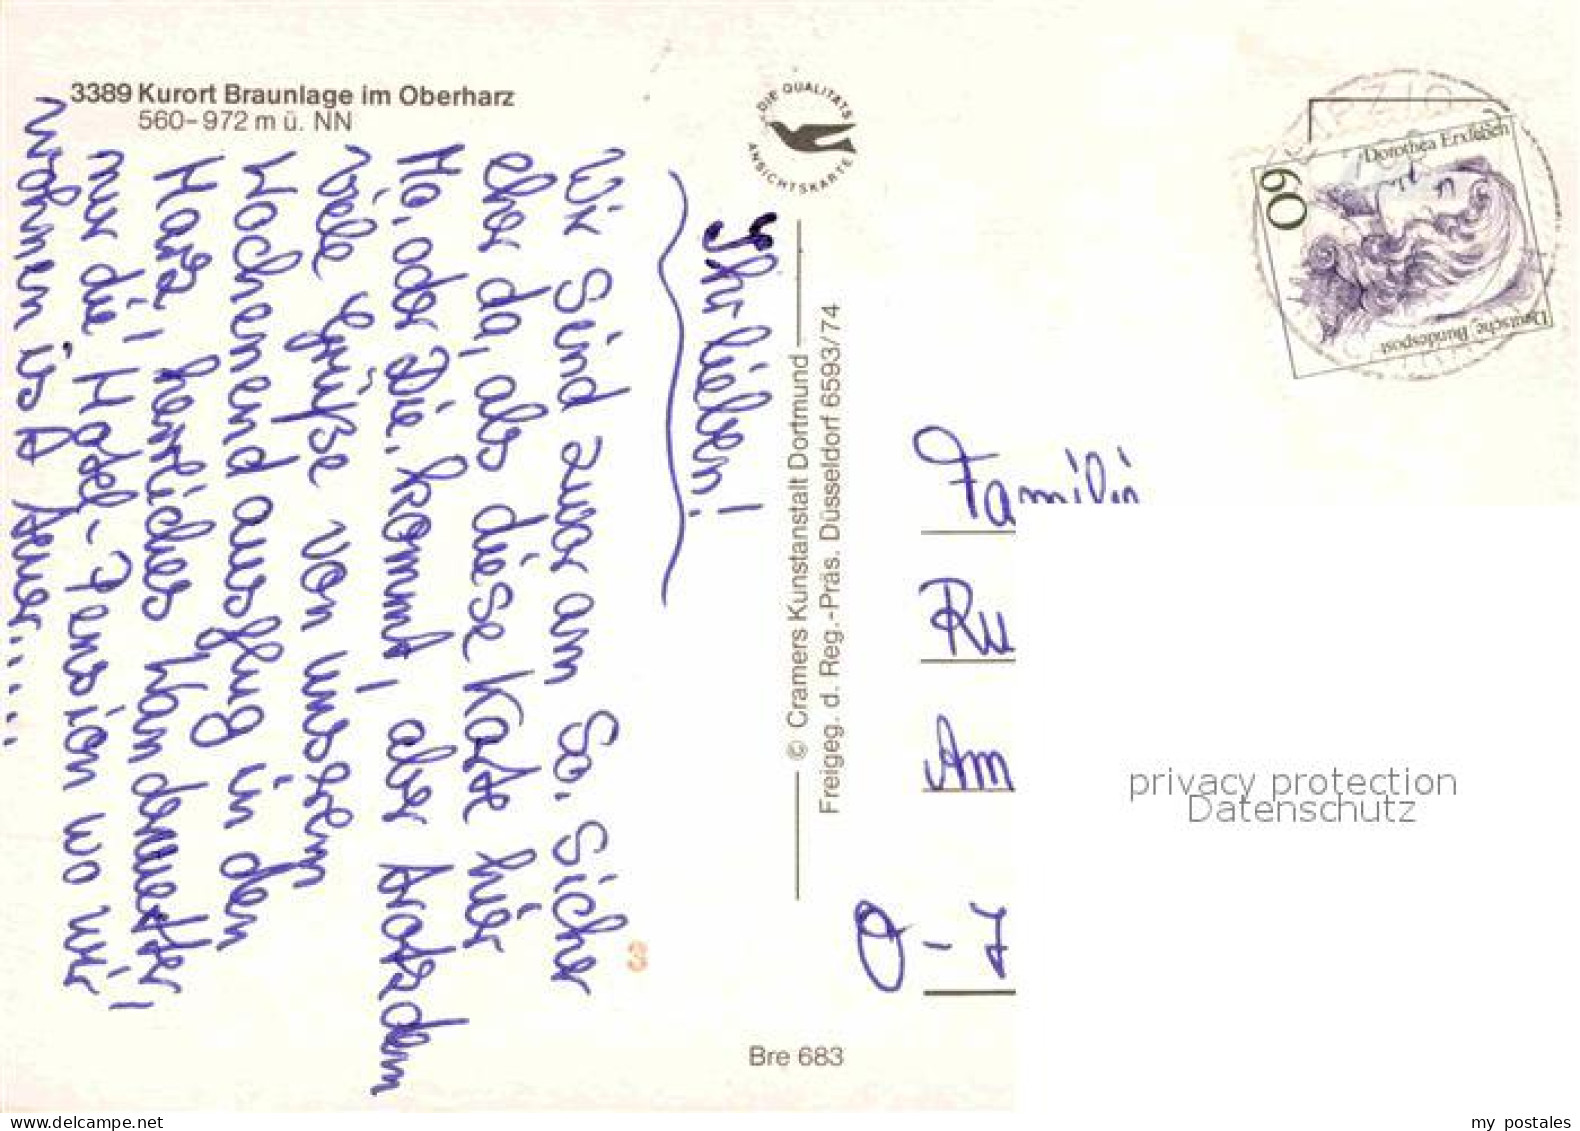 3389 Kurort Braunlage im Oberharz
560-972 m ü. NN
DIE QUALITÄTS
ANSICHTSKARTE
Ihr lieben!
Wir sind zwar am So. sicher
eher da, als diese Karte hier
Mo. oder Die. kommt, aber trotzdem
viele Grüße von unserem
Wochenendausflug in den
Harz, herrliches Wanderwetter,
nur die Hotel-Pension wo wir
wohnen is
© Cramers Kunstanstalt Dortmund
Freigeg. d. Reg.-Präs. Düsseldorf 6593/74
Bre 683
Dorothea Erxleben
60
Deutsche Bundespost
Familie
Ru
Am
O-7
privacy protection
Datenschutz
my postales